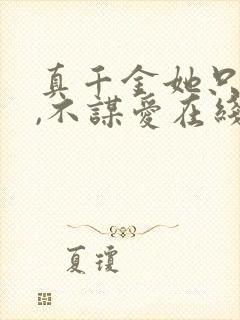 真千金她只
,不謀愛在綫
夏瓊